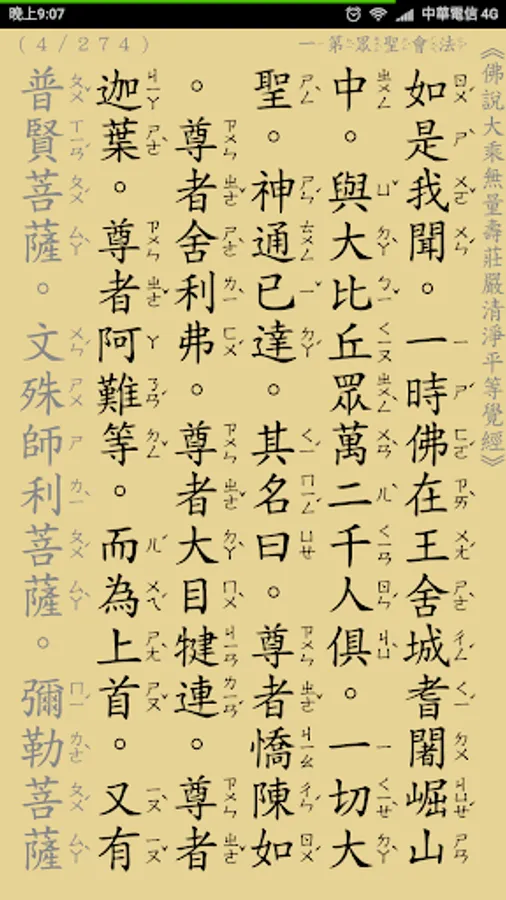 晚上9:07 中華電信 4G
(4/274) 法會聖眾第一
《佛說大乘無量壽莊嚴清淨平等覺經》
如是我聞。一時佛在王舍城耆闍崛山
中。與大比丘眾萬二千人俱。一切大
聖。神通已達。其名曰。尊者憍陳如
。尊者舍利弗。尊者大目犍連。尊者
迦葉。尊者阿難等。而為上首。又有
普賢菩薩。文殊師利菩薩。彌勒菩薩